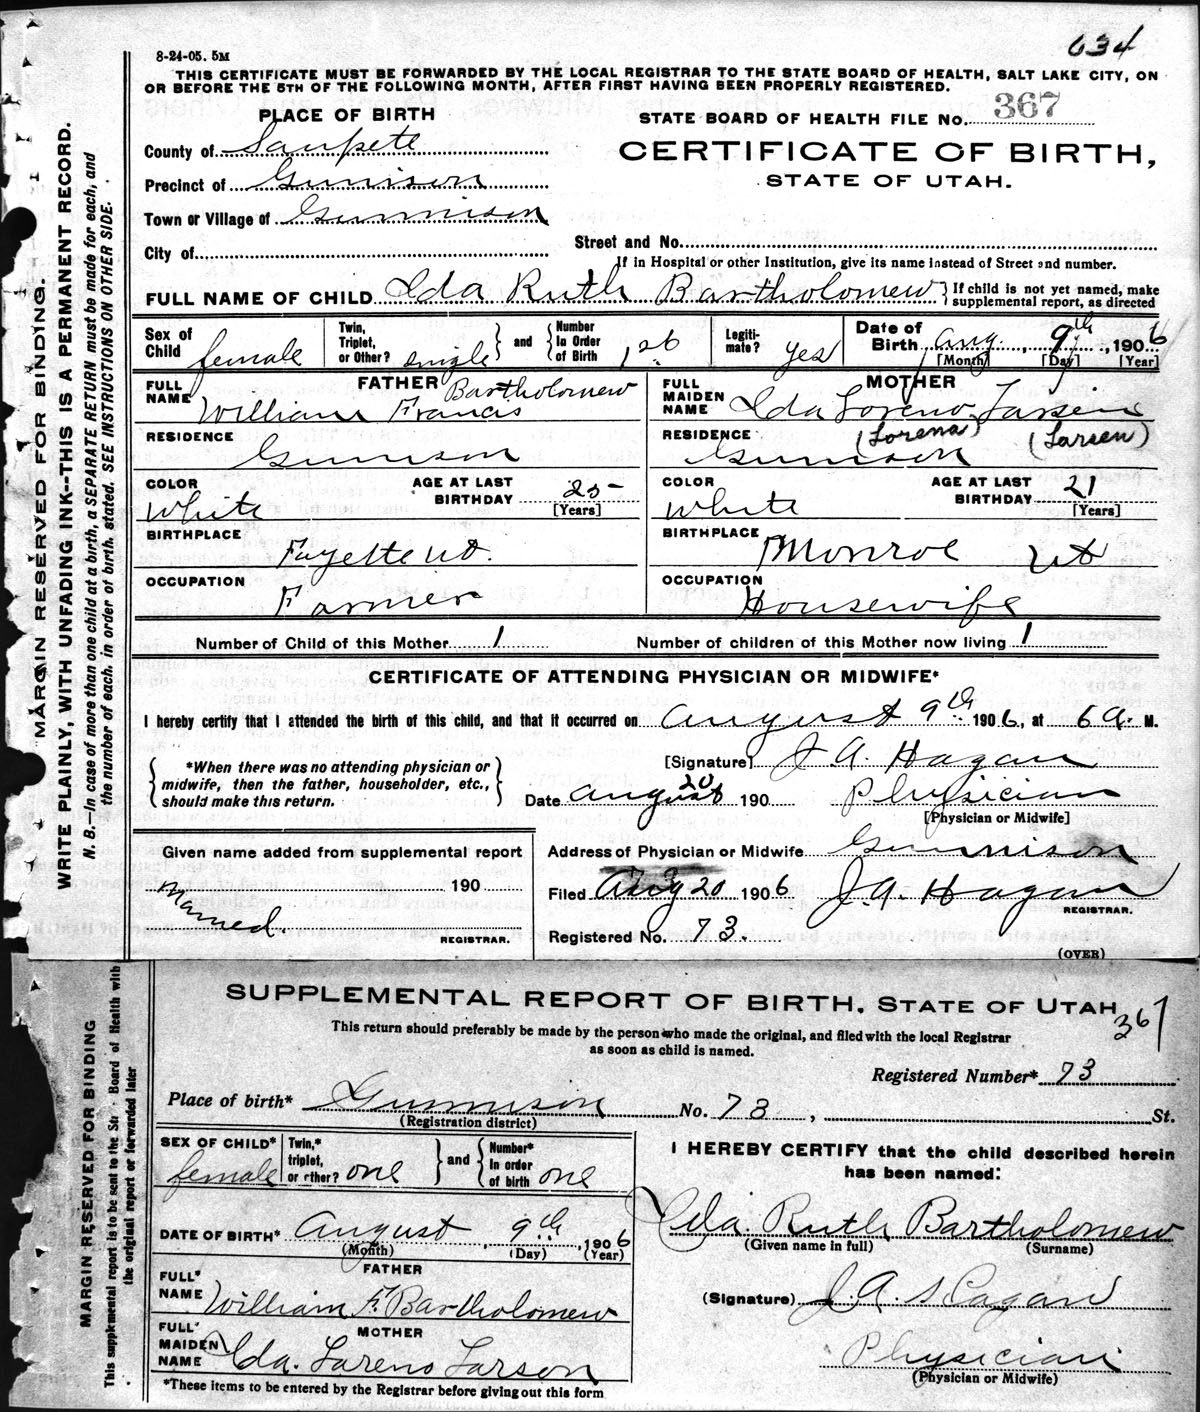 634
8-24-05. 5M
THIS CERTIFICATE MUST BE FORWARDED BY THE LOCAL REGISTRAR TO THE STATE BOARD OF HEALTH, SALT LAKE CITY, ON
OR BEFORE THE 5TH OF THE FOLLOWING MONTH, AFTER FIRST HAVING BEEN PROPERLY REGISTERED.
PLACE OF BIRTH
STATE BOARD OF HEALTH FILE No. 367
County of Sanpete
CERTIFICATE OF BIRTH,
STATE OF UTAH.
Precinct of Gunnison
Town or Village of Gunnison
City of
Street and No.
If in Hospital or other Institution, give its name instead of Street and number.
FULL NAME OF CHILD Ida Ruth Bartholomew } If child is not yet named, make supplemental report, as directed
Sex of Child female Twin, Triplet, or Other? single } and { Number In Order of Birth 1st Legiti-mate? yes Date of Birth Aug. 9th, 1906
[Month] [Day] [Year]
FATHER
FULL NAME William Francis Bartholomew
MOTHER
FULL MAIDEN NAME Ida Loreno Larsen
(Lorena) (Larsen)
RESIDENCE Gunnison
RESIDENCE Gunnison
COLOR White AGE AT LAST BIRTHDAY 25 [Years]
COLOR White AGE AT LAST BIRTHDAY 21 [Years]
BIRTHPLACE Fayette Ut.
BIRTHPLACE Monroe Ut
OCCUPATION Farmer
OCCUPATION Housewife
Number of Child of this Mother 1 Number of children of this Mother now living 1
CERTIFICATE OF ATTENDING PHYSICIAN OR MIDWIFE*
I hereby certify that I attended the birth of this child, and that it occurred on August 9th 1906, at 6 A. M.
*When there was no attending physician or
midwife, then the father, householder, etc.,
should make this return.
[Signature] J A Hagan
Date August 20 190 Physician
[Physician or Midwife]
Given name added from supplemental report
190
Named.
REGISTRAR.
Address of Physician or Midwife Gunnison
Filed Aug 20 1906 J. A. Hagan
REGISTRAR.
Registered No. 73.
(OVER)
MARGIN RESERVED FOR BINDING.
WRITE PLAINLY, WITH UNFADING INK--THIS IS A PERMANENT RECORD.
N. B.—In case of more than one child at a birth, a SEPARATE RETURN must be made for each, and
the number of each, in order of birth, stated. SEE INSTRUCTIONS ON OTHER SIDE.
SUPPLEMENTAL REPORT OF BIRTH, STATE OF UTAH
367
This return should preferably be made by the person who made the original, and filed with the local Registrar
as soon as child is named.
Registered Number* 73
Place of birth* Gunnison No. 73, St.
(Registration district)
SEX OF CHILD* female Twin,* triplet, or other? one } and { Number* In order of birth one
I HEREBY CERTIFY that the child described herein
has been named:
Ida. Ruth Bartholomew
(Given name in full) (Surname)
DATE OF BIRTH* August 9th, 1906
(Month) (Day) (Year)
FATHER
FULL* NAME William F. Bartholomew
(Signature) J. A. Hagan
MOTHER
FULL* MAIDEN NAME Ida. Loreno Larson
Physician
(Physician or Midwife)
*These items to be entered by the Registrar before giving out this form
MARGIN RESERVED FOR BINDING
This supplemental report is to be sent to the Board of Health with
the original report or forwarded later